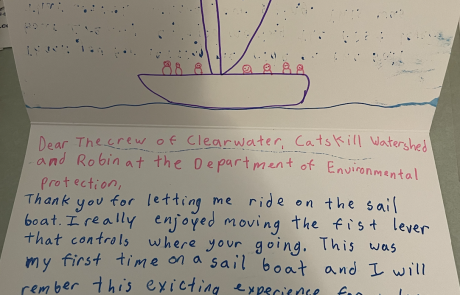 Dear The crew of Clearwater, Catskill Watershed
and Robin at the Department of Environmental
Protection,
Thank you for letting me ride on the sail
boat. I really enjoyed moving the fist lever
that controls where your going. This was
my first time on a sail boat and I will
rember this exicting experience